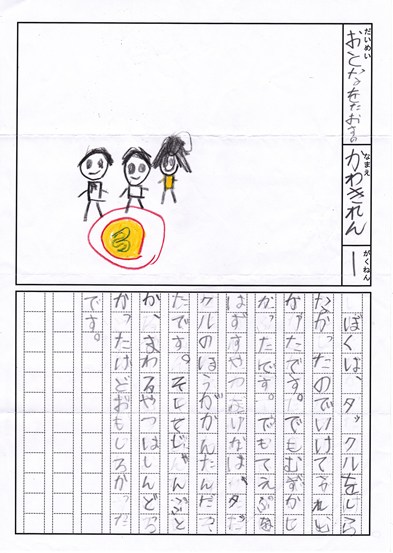 だいめい
おとなをたおすの
なまえ
かわきれん
がくねん
一
ぼくは、タックルをしら
なかったのでいけてうれし
かったです。でもむずかし
かったです。でもてえぷを
はずすやつ
タ
クルのほうがかんたんだっ
たです。そしてじゃんぷと
か、まわるやつはしんどっ
かったけどおもしろかった
です。